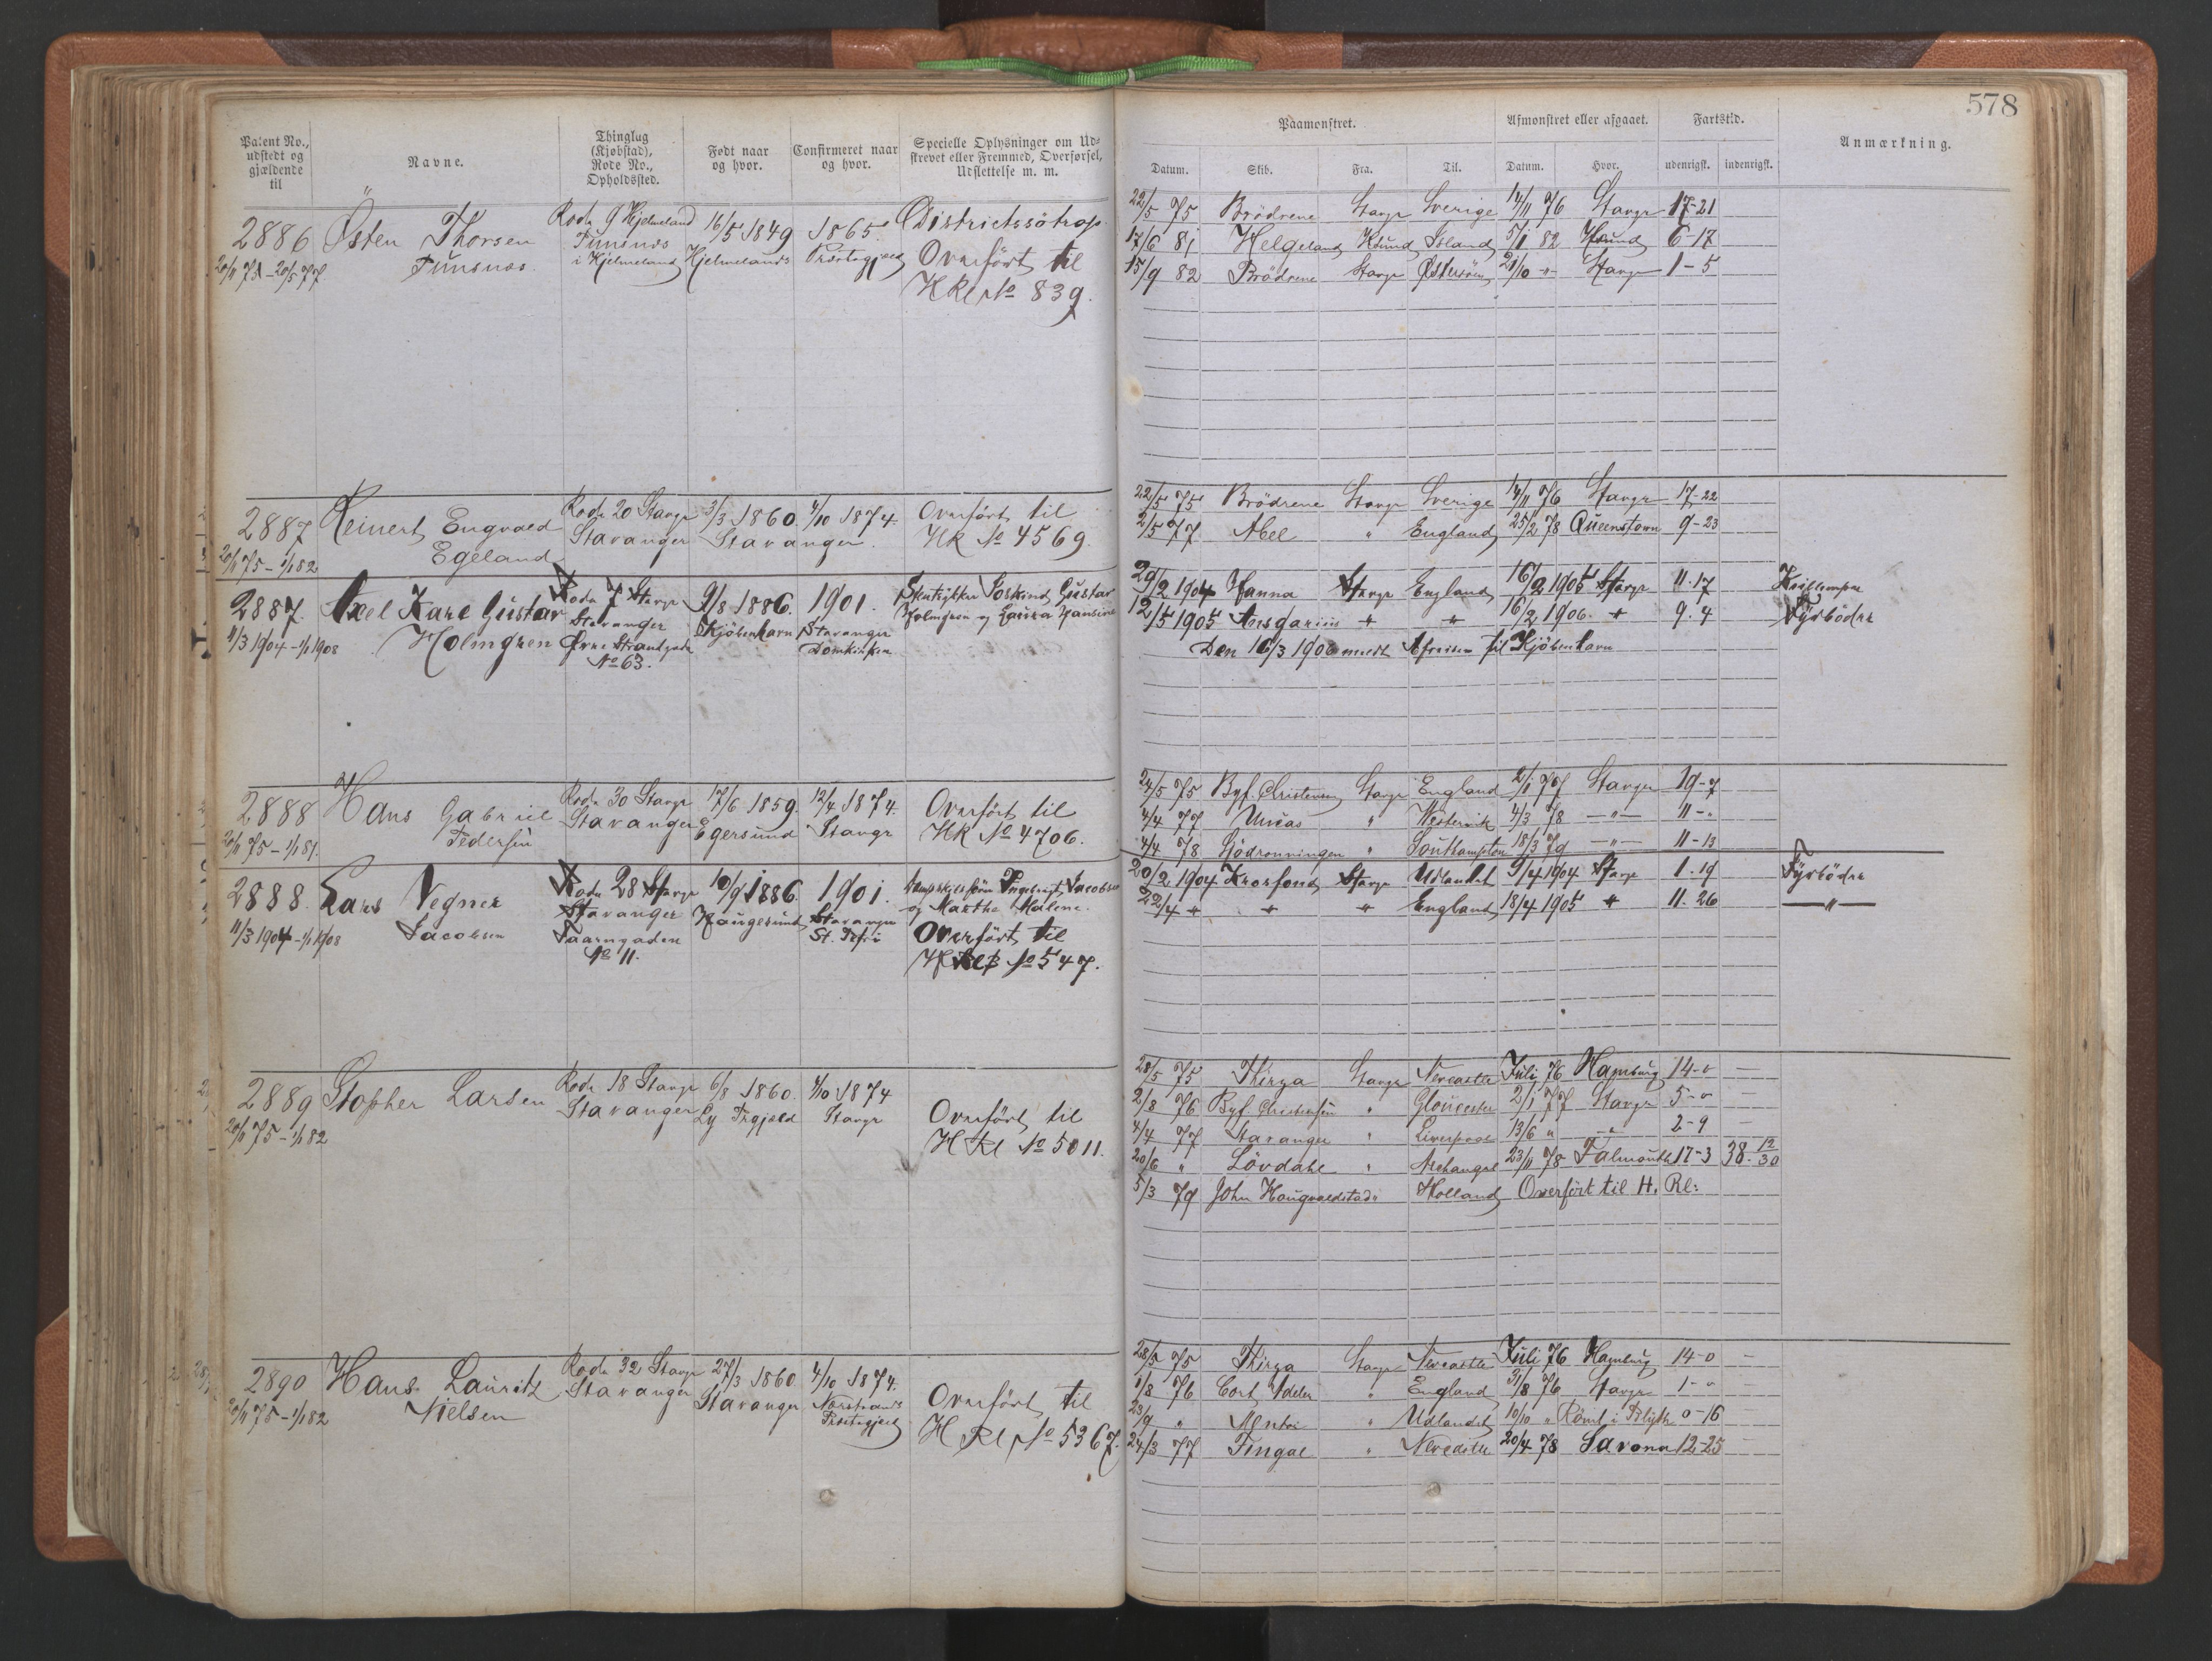 578
Patent No., udstedt og gjældende til
Navne.
Thinglag (Kjøbstad), Rode No., Opholdssted.
Født naar og hvor.
Confirmeret naar og hvor.
Specielle Oplysninger om Udskrevet eller Fremmed, Overførsel, Udslettelse m. m.
Paamønstret.
Afmønstret eller afgaaet.
Fartstid.
Anmærkning.
Datum. Skib. Fra. Til. Datum. Hvor. udenrigsk. indenrigsk.
2886 Østen Thorsen Rode 9 Hjelmeland 16/5 1849 1865 Districtssötrop
Tunsnæs i Hjelmeland Hjelmelands Præstegjeld Overført til
HRl No 839.
22/5 75 Brödrene Stavgr Sverige 14/11 76 Stavgr 17-21
17/6 81 Helgeland Hsund Island 5/1 82 Hsund 6-17
15/9 82 Brödrene Stavgr Østersøen 21/10 -"- Stavgr 1-5
2887 Reinert Engvald Rode 20 Stavgr 3/3 1860 4/10 1874. Overført til
20/11 75 - 1/1 82 Egeland Stavanger Stavanger HR No 4569.
22/5 75 Brödrene Stavgr Sverige 14/11 76 Stavgr 17-22
2/5 77 Abel " England 25/2 78 Queenstown 9-23
2887. Axel Karl Gustav Rode 7 Stavgr 9/8 1886. 1901. Gustav
11/3 1904 - 1/1 1908 Holmgren Stavanger Kjöbenhavn Stavanger Holmgren og Hansine
Øvre Strandgade Domkirken
No 63.
29/2 1904 Hanna Stavgr England 16/2 1905 Stavgr 11.17
12/5 1905 " " 16/2 1906. " 9.4 Fyrböder
Den 16/3 1906 meldt Afreisen til Kjöbenhavn
2888 Hans Gabriel Rode 30 Stavgr 17/6 1859. 12/4 1874. Overført til
20/11 75 - 1/1 81. Pedersen Stavanger Egersund Stavgr HR No 4706.
24/5 75 Byf. Christensen Stavgr England 2/1 77 Stavgr 19-7
4/4 77 Uncas " Westervik 4/3 78 -"- 11-"
4/4 78 Sjödronningen " Southampton 18/3 79 -"- 11-13
2888. Lars Vegner Rode 28 Stavgr 10/9 1886. 1901. Ingebrigt Jacobsen
11/3 1904 - 1/1 1908 Jacobsen Stavanger Haugesund Stavanger og Marthe Malene.
No 11. St. Petri Overført til
HRl B No 547.
20/2 1904 Krosfond Stavgr Udlandet 9/4 1904 Stavgr 1.19 Fyrböder
22/4 " " " England 18/4 1905 " 11.26 -"-
2889 Stopher Larsen Rode 18 Stavgr 6/8 1860. 4/10 1874
20/11 75 - 1/1 82 Stavanger Ly Prgjæld Stavgr Overført til
HRl No 5011.
28/5 75 Thirza Stavgr Newcastle Juli 76 Hamburg 14-0
2/8 76 Byf. Christensen " Gloucester 2/1 77 Stavgr 5-"
4/4 77 Stavanger " Liverpool 13/6 " -"- 2-9
20/6 " Lövdahl " Archangel 23/11 78 Falmouth 17-3 38-12/30
5/3 79 John Hougvaldstad " Holland Overført til H. Rl:
2890 Hans Lauritz Rode 32 Stavgr 27/3 1860 4/10 1874.
20/11 75 - 1/1 82 Nielsen Stavanger Stavanger Nærstrands Præstegjeld Overført til
HRl No 5367.
28/5 75 Thirza Stavgr Newcastle Juli 76 Hamburg 14-0
1/8 76 Cort Adeler " England 31/8 76 Stavgr 1-"
23/9 " Mentor " Udlandet 10/10 " Römt i 0-16
24/3 77 Fingal " Newcastle 20/4 78 Savona 12-25